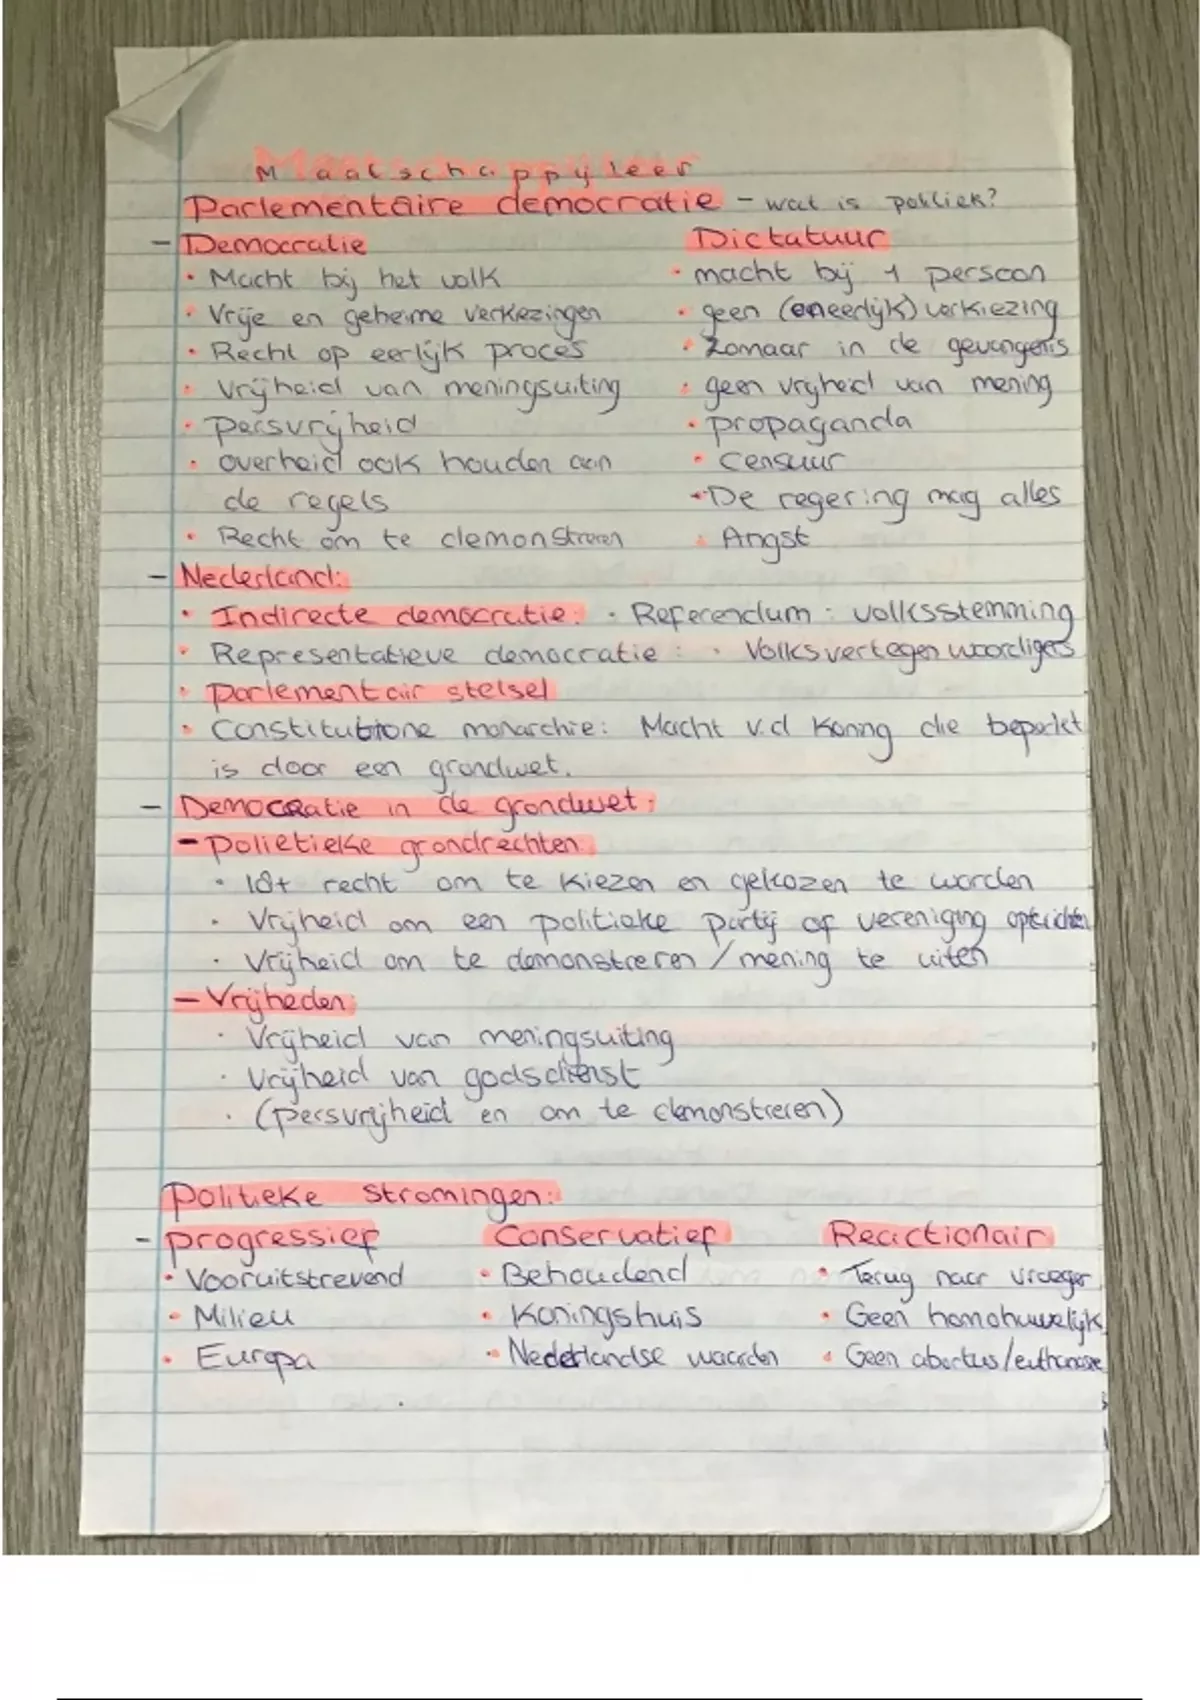 Maatschappijleer
Parlementaire democratie - wat is politiek?
- Democratie
• Macht bij het volk
• Vrije en geheime verkiezingen
• Recht op eerlijk proces
• Vrijheid van meningsuiting
• persvrijheid
• overheid ook houden aan
de regels
• Recht om te demonstreren
Dictatuur
• macht bij 1 persoon
• geen (oneerlijk) verkiezing
• Zomaar in de gevangenis
• geen vrijheid van mening
• propaganda
• censuur
• De regering mag alles
• Angst
- Nederland:
• Indirecte democratie: • Referendum: volksstemming
• Representatieve democratie: • Volksvertegenwoordigers
• parlementair stelsel
• Constitutione monarchie: Macht v.d Koning die beperkt
is door een grondwet.
- Democratie in de grondwet:
- polietieke grondrechten:
• 18+ recht om te kiezen en gekozen te worden
• Vrijheid om een politieke partij of vereniging oprichten
• Vrijheid om te demonstreren / mening te uiten
- Vrijheden:
• Vrijheid van meningsuiting
• Vrijheid van godsdienst
• (persvrijheid en om te demonstreren)
Politieke Stromingen:
- progressief
• Vooruitstrevend
• Milieu
• Europa
Conservatief
• Behoudend
• Koningshuis
• Nederlandse waarden
Reactionair
• Terug naar vroeger
• Geen homohuwelijk
• Geen abortus/euthanasie